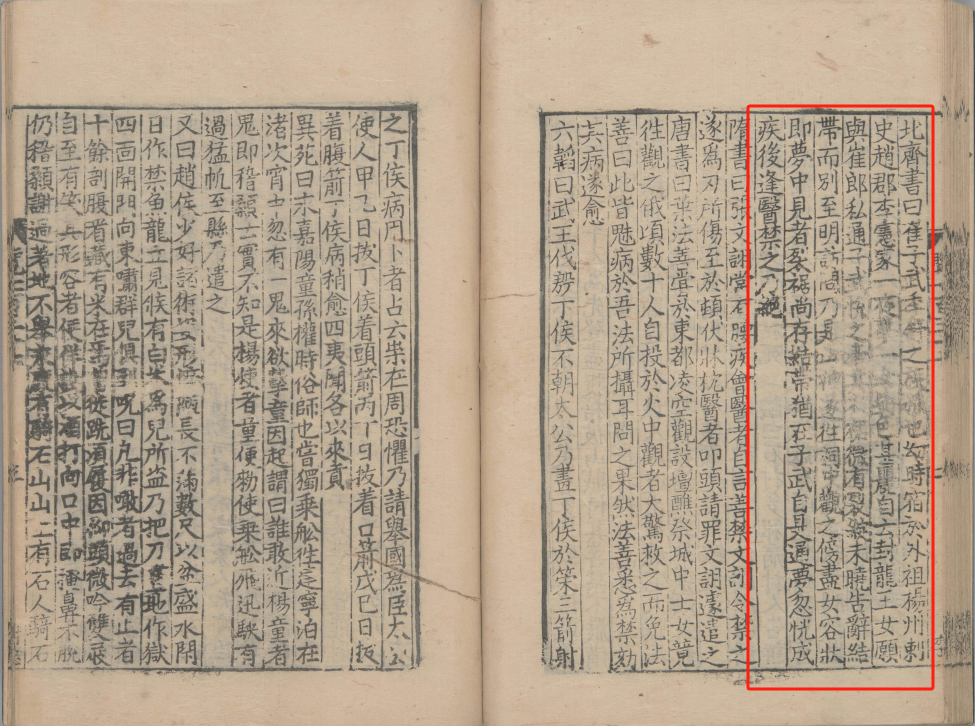 北齊書曰崔子武季舒之族孫也幼時宿於外祖楊州刺
史趙郡李憲家一夜夢一女姿色甚麗自云封龍王女願
與崔郎私通子武悅之牽其衣裾微有裂綻未曉告辭結
帶而別至明訪問乃是山神遂往祠中觀之傍畫女容狀
即夢中見者裂裾尚存結帶猶在子武自具通夢忽恍成
疾後逢醫禁之乃絕
隋書曰張文詡常有腰疾會醫者自言善禁文詡令禁之
遂爲刃所傷至於頓伏牀枕醫者叩頭請罪文詡遽遣之
唐書曰葉法善甞於東都凌空觀設壇醮祭城中士女竟
徃觀之俄頃數十人自投於火中觀者大驚救之而免法
善曰此皆魅病於吾法所攝耳問之果然法善悉爲禁劾
其病遂愈
六韜曰武王伐殷丁侯不朝太公乃畫丁侯於策三箭射
之丁侯病困卜者占云祟在周恐懼乃請舉國爲臣太公
使人甲乙日拔丁侯着頭箭丙丁日拔着口箭戊巳日拔
着腹箭丁侯病稍愈四夷聞各以來貢
異苑曰永嘉陽童孫權時俗師也嘗獨乘舩徃建寧泊在
渚次宵中忽有一鬼來欲擊童因起謂曰誰敢近楊童者
鬼即稽顙云實不知是楊使者童便勑使乘舩飛迅駛有
過猛帆至縣乃遣之
又曰趙侯少好諸術姿形悴陋長不滿數尺以盆盛水閉
日作禁魚龍立見侯有白米爲鼠所盗乃把刀畫地作獄
四面開門向東嘯群鼠俱到呪曰凡非噉者過去有止者
十餘剖腹看藏有米在焉曾徒跣須屨因仰頭微吟雙屐
自至有笑其形容者便佯設以酒杯向口中即掩鼻不脫
仍稽顙謝過著地不舉永康有騎石山山上有石人騎石